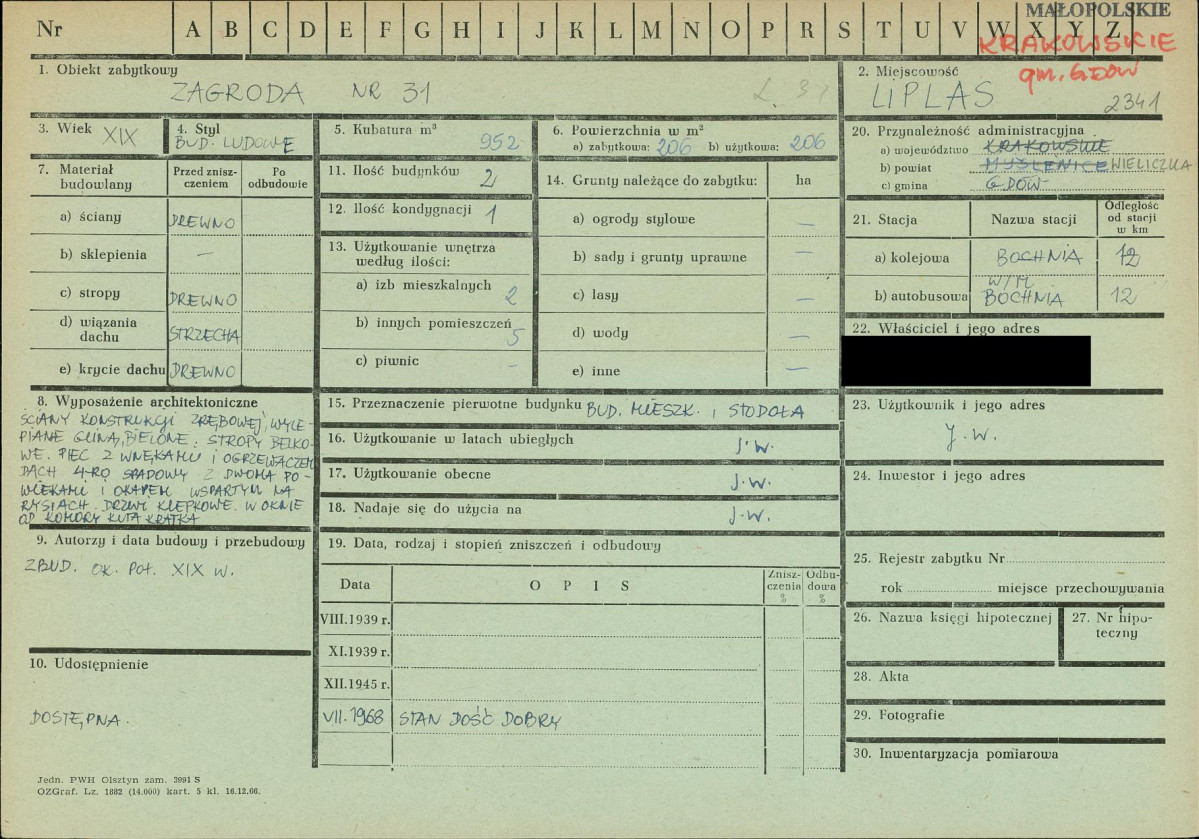 MAŁOPOLSKIE
Nr A B C D E F G H I J K L M N O P R S T U V W X Y Z
KRAKOWSKIE
gm. GDÓW
1. Obiekt zabytkowy
ZAGRODA NR 31
L. 31
2. Miejscowość
LIPLAS
2341
3. Wiek XIX
4. Styl
BUD. LUDOWE
5. Kubatura m³
952
6. Powierzchnia w m²
a) zabytkowa: 206 b) użytkowa: 206
7. Materiał budowlany
Przed znisz-
czeniem
Po
odbudowie
a) ściany DREWNO
b) sklepienia —
c) stropy DREWNO
d) wiązania
dachu STRZECHA
e) krycie dachu DREWNO
8. Wyposażenie architektoniczne
ŚCIANY KONSTRUKCJI ZRĘBOWEJ, WYLE-
PIANE GLINĄ, BIELONE. STROPY BELKO-
WE. PIEC Z WNĘKAMI I OGRZEWACZEM
DACH 4-RO SPADOWY Z DWOMA PO-
WIEKAMI I OKAPEM WSPARTYM NA
RYSIACH. DRZWI KLEPKOWE. W OKNIE
OD KOMORY KUTA KRATKA
9. Autorzy i data budowy i przebudowy
ZBUD. OK. POŁ. XIX W.
10. Udostępnienie
DOSTĘPNA.
11. Ilość budynków 2
12. Ilość kondygnacji 1
13. Użytkowanie wnętrza
według ilości:
a) izb mieszkalnych 2
b) innych pomieszczeń 5
c) piwnic -
14. Grunty należące do zabytku: ha
a) ogrody stylowe —
b) sady i grunty uprawne —
c) lasy —
d) wody —
e) inne —
15. Przeznaczenie pierwotne budynku BUD. MIESZK. I STODOŁA
16. Użytkowanie w latach ubiegłych J.W.
17. Użytkowanie obecne J.W.
18. Nadaje się do użycia na J.W.
19. Data, rodzaj i stopień zniszczeń i odbudowy
Data O P I S
Znisz-
czenia
%
Odbu-
dowa
%
VIII.1939 r.
XI.1939 r.
XII.1945 r.
VII.1968 STAN DOŚĆ DOBRY
20. Przynależność administracyjna
a) województwo KRAKOWSKIE
b) powiat MYŚLENICE WIELICZKA
c) gmina GDÓW
21. Stacja Nazwa stacji
Odległość
od stacji
w km
a) kolejowa BOCHNIA 12
b) autobusowa W/M. BOCHNIA 12
22. Właściciel i jego adres
23. Użytkownik i jego adres
J.W.
24. Inwestor i jego adres
25. Rejestr zabytku Nr
rok miejsce przechowywania
26. Nazwa księgi hipotecznej
27. Nr hipo-
teczny
28. Akta
29. Fotografie
30. Inwentaryzacja pomiarowa
Jedn. PWH Olsztyn zam. 3991 S
OZGraf. Lz. 1882 (14.000) kart. 5 kl. 16.12.66.